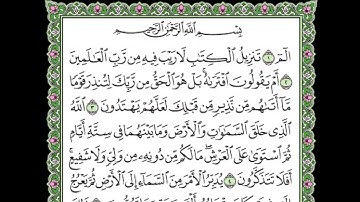 بِسْمِ ٱللَّهِ ٱلرَّحْمَٰنِ ٱلرَّحِيمِ
الٓمٓ ١ تَنزِيلُ ٱلْكِتَٰبِ لَا رَيْبَ فِيهِ مِن رَّبِّ ٱلْعَٰلَمِينَ
٢ أَمْ يَقُولُونَ ٱفْتَرَىٰهُ بَلْ هُوَ ٱلْحَقُّ مِن رَّبِّكَ لِتُنذِرَ قَوْمًا
مَّآ أَتَىٰهُم مِّن نَّذِيرٍ مِّن قَبْلِكَ لَعَلَّهُمْ يَهْتَدُونَ ٣ ٱللَّهُ
ٱلَّذِى خَلَقَ ٱلسَّمَٰوَٰتِ وَٱلْأَرْضَ وَمَا بَيْنَهُمَا فِى سِتَّةِ أَيَّامٍ
ثُمَّ ٱسْتَوَىٰ عَلَى ٱلْعَرْشِ مَا لَكُم مِّن دُونِهِۦ مِن وَلِىٍّ وَلَا شَفِيعٍ
أَفَلَا تَتَذَكَّرُونَ ٤ يُدَبِّرُ ٱلْأَمْرَ مِنَ ٱلسَّمَآءِ إِلَى ٱلْأَرْضِ ثُمَّ يَعْرُجُ